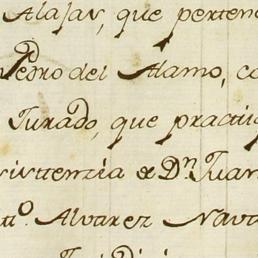 Alajar, que perten
Pedro del Alamo, co
Jurado, que practi
sistencia de Dn. Juan
tto. Alvarez Nava